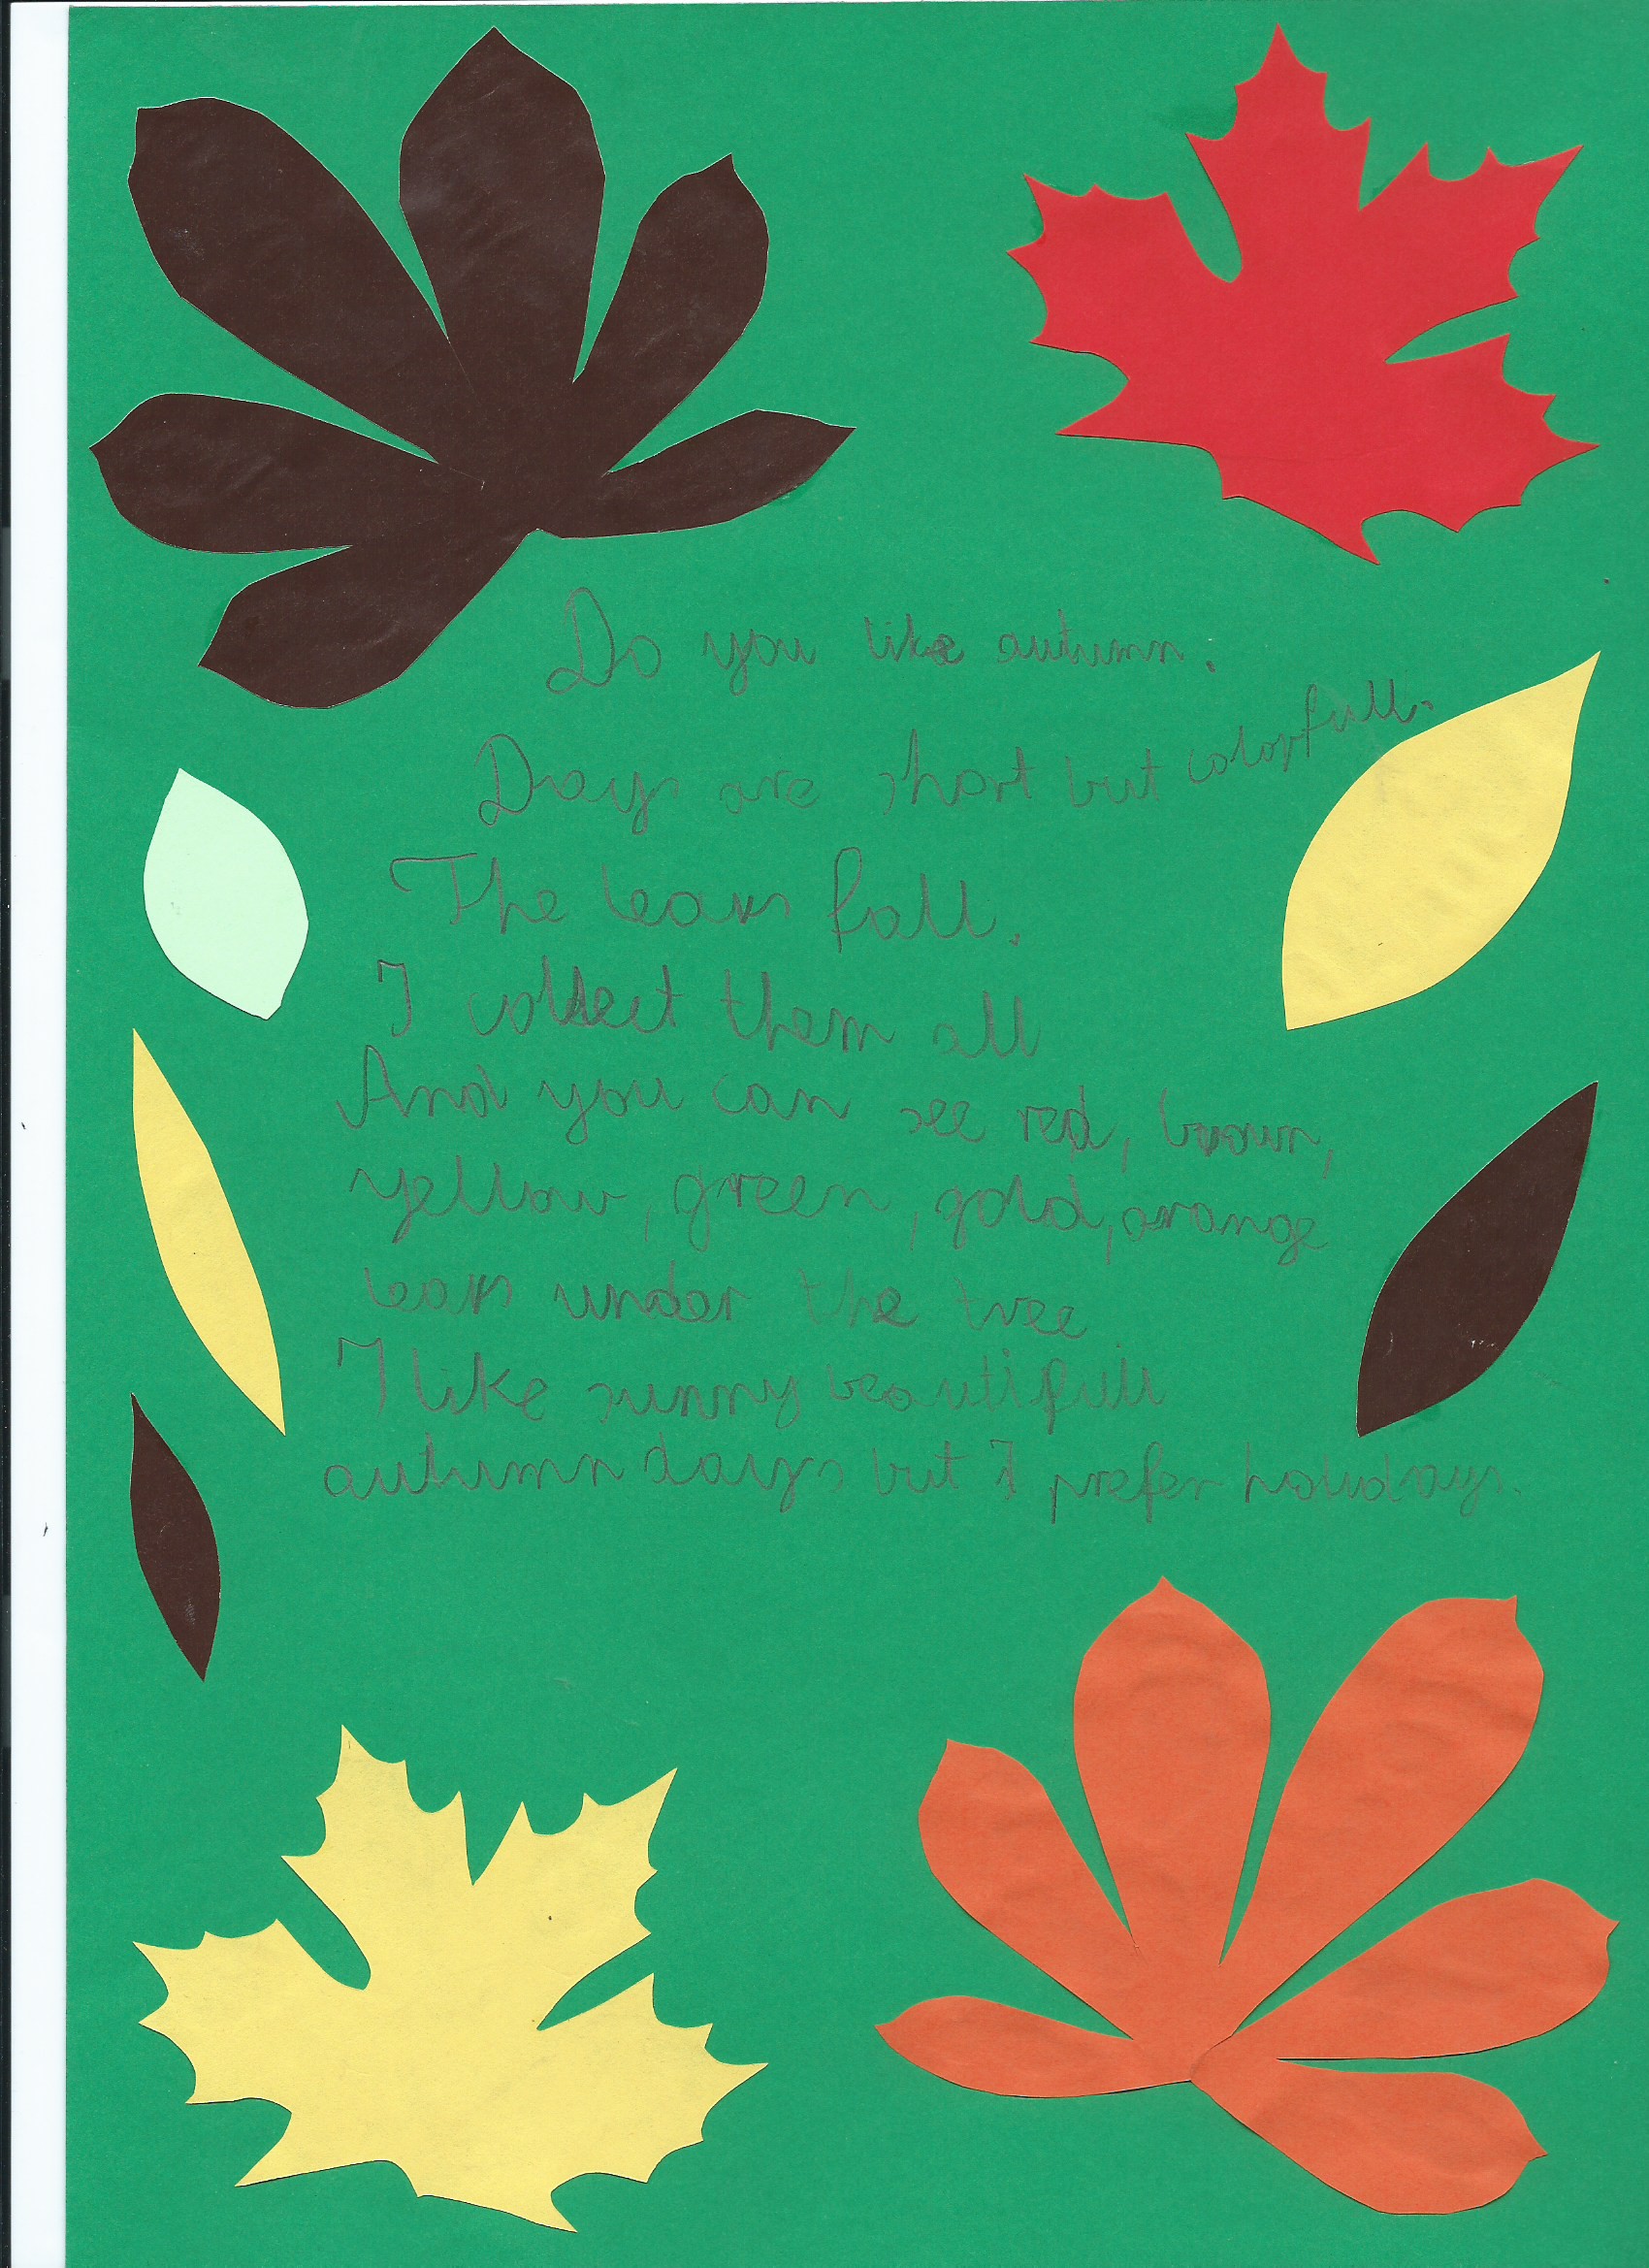 Do you like autumn.
Days are short but colorfull.
The leavs fall.
I collect them all
And you can see red, brown,
yellow, green, gold, orange
leavs under the tree
I like sunny beautifull
autumn days but I prefer holidays.